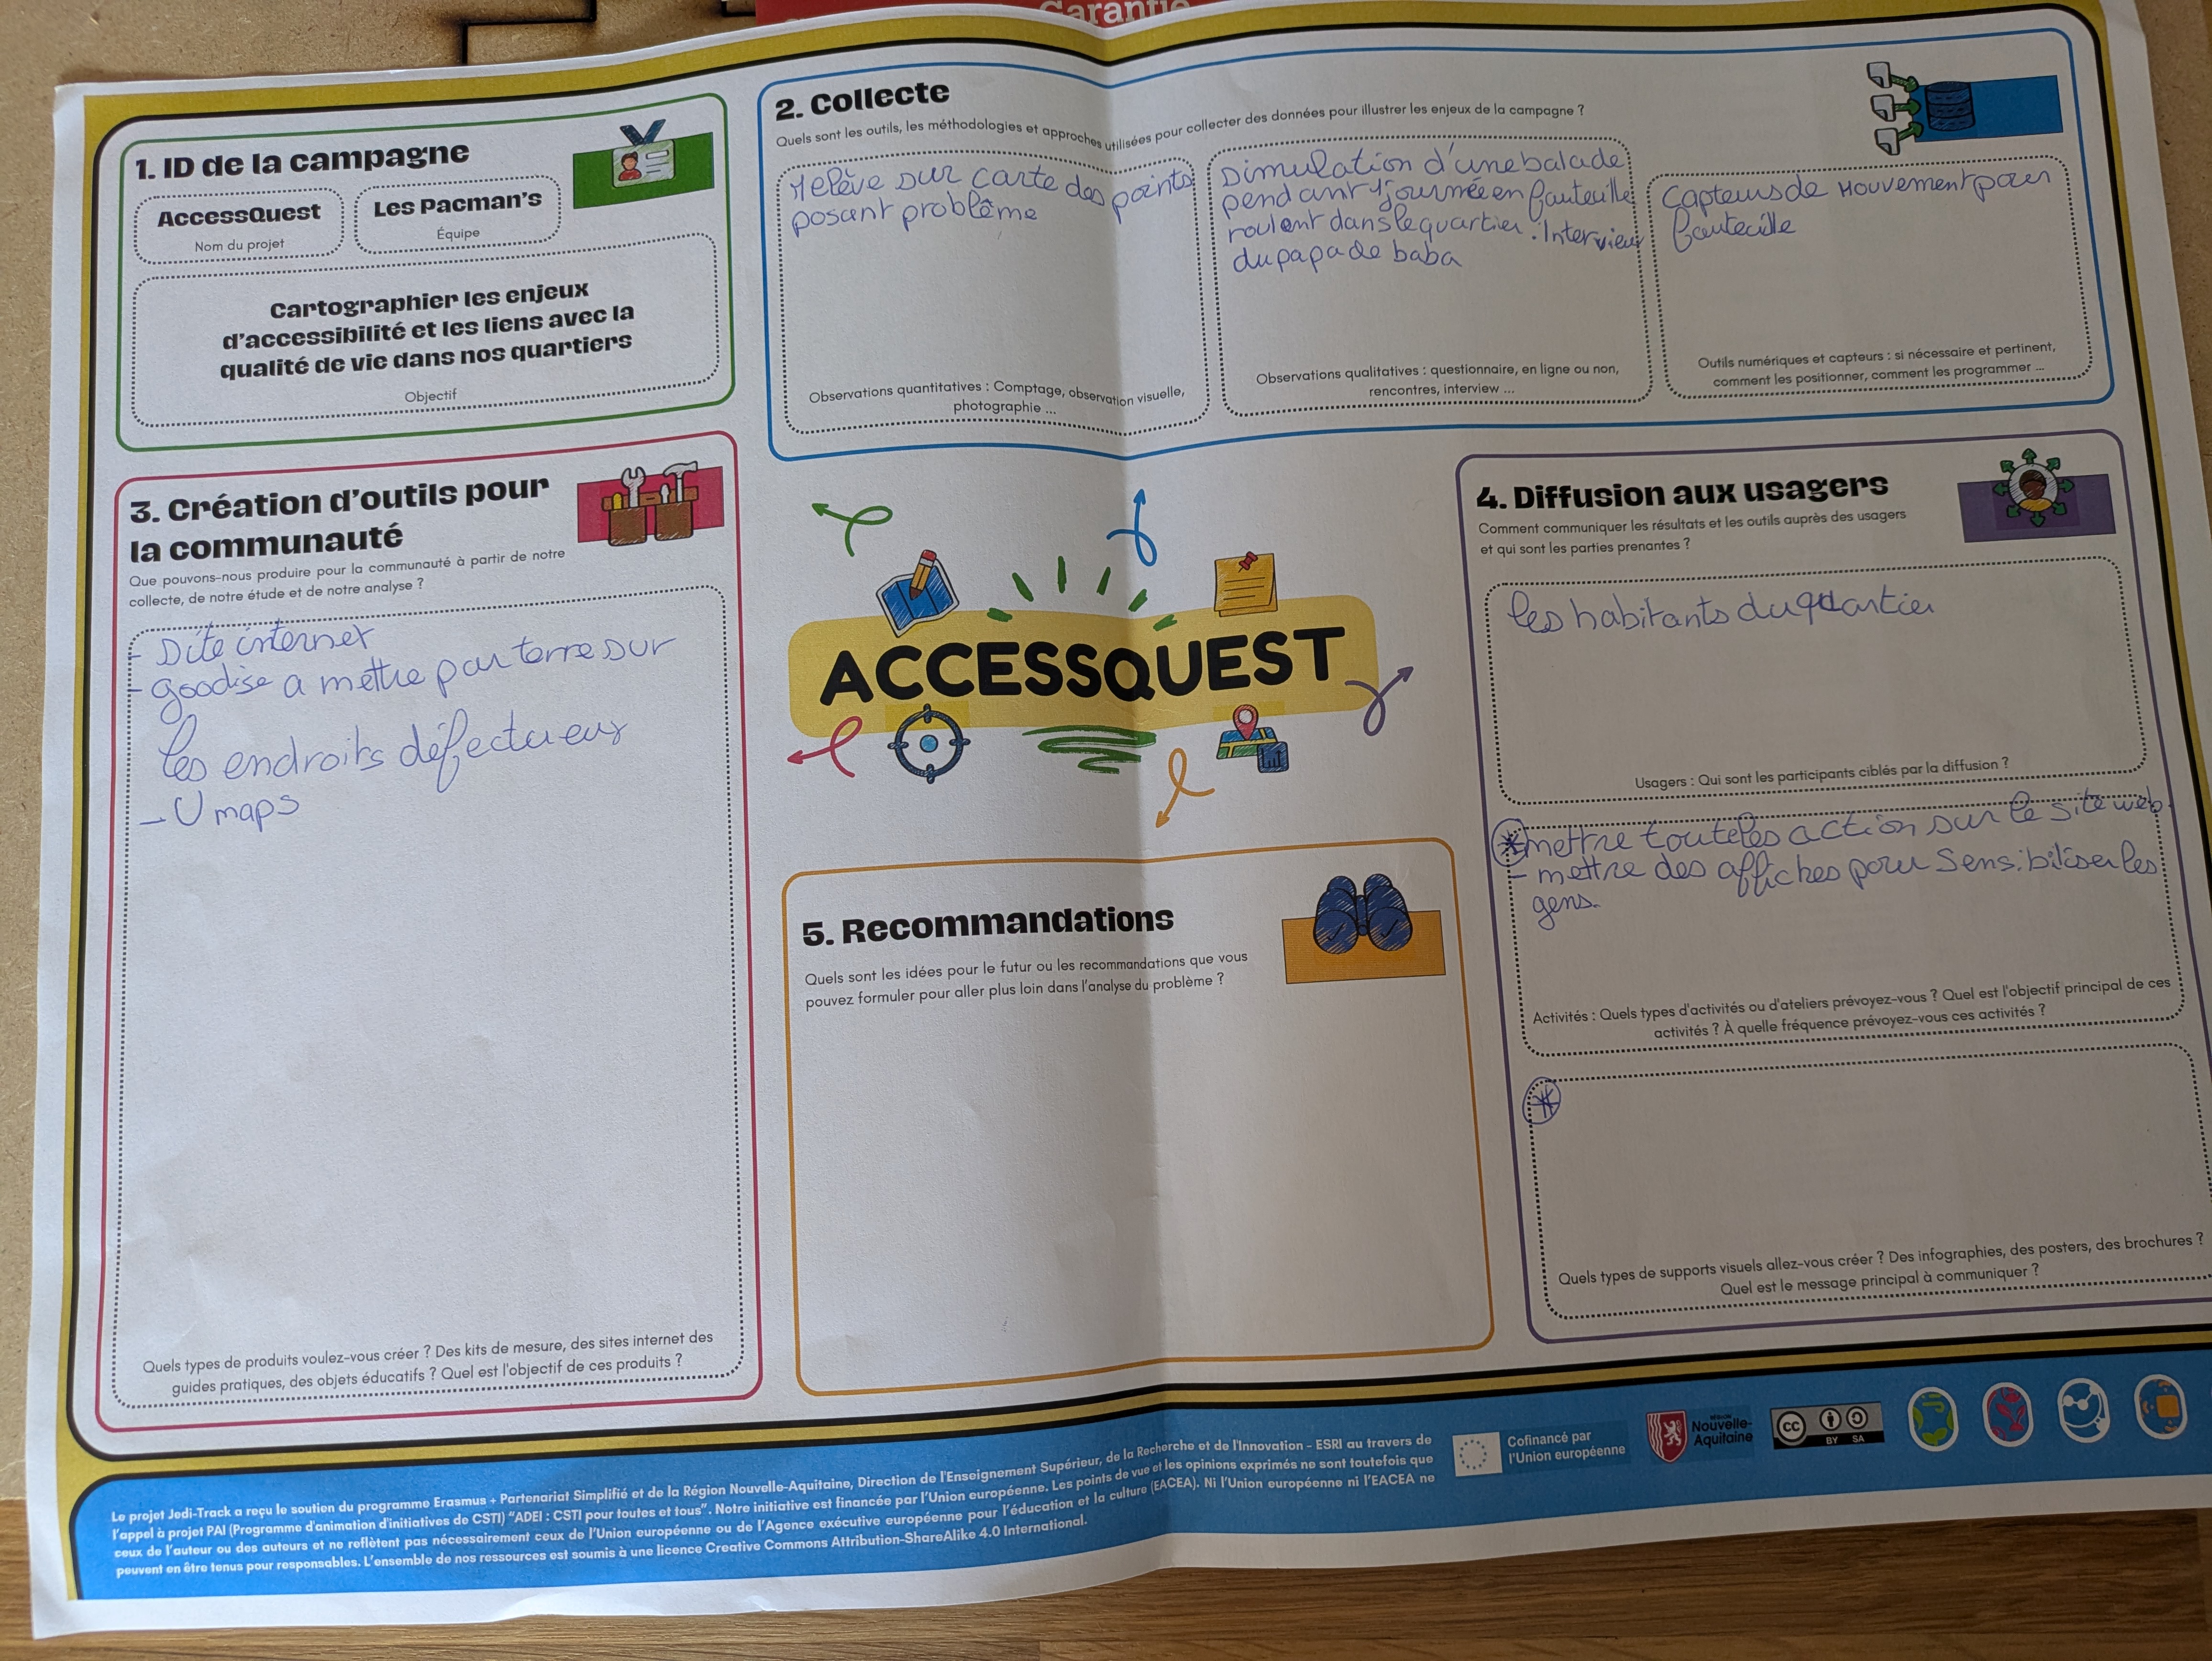 Garantie
1. ID de la campagne
AccessQuest
Nom du projet
Les Pacman's
Équipe
Cartographier les enjeux
d'accessibilité et les liens avec la
qualité de vie dans nos quartiers
Objectif
2. Collecte
Quels sont les outils, les méthodologies et approches utilisées pour collecter des données pour illustrer les enjeux de la campagne ?
relève sur carte des points
posant problème
Observations quantitatives : Comptage, observation visuelle,
photographie ...
Simulation d'une balade
pendant 1 journée en fauteuille
roulant dans le quartier. Interview
du papa de baba
Observations qualitatives : questionnaire, en ligne ou non,
rencontres, interview ...
Capteurs de Mouvement pour
fauteuille
Outils numériques et capteurs : si nécessaire et pertinent,
comment les positionner, comment les programmer ...
3. Création d'outils pour
la communauté
Que pouvons-nous produire pour la communauté à partir de notre
collecte, de notre étude et de notre analyse ?
- Site internet
- goodise a mettre par terre sur
les endroits défectueux
- U maps
Quels types de produits voulez-vous créer ? Des kits de mesure, des sites internet des
guides pratiques, des objets éducatifs ? Quel est l'objectif de ces produits ?
ACCESSQUEST
4. Diffusion aux usagers
Comment communiquer les résultats et les outils auprès des usagers
et qui sont les parties prenantes ?
les habitants du quartier
Usagers : Qui sont les participants ciblés par la diffusion ?
* mettre toute les action sur le site web.
- mettre des affiches pour sensibiliser les
gens.
Activités : Quels types d'activités ou d'ateliers prévoyez-vous ? Quel est l'objectif principal de ces
activités ? À quelle fréquence prévoyez-vous ces activités ?
*
Quels types de supports visuels allez-vous créer ? Des infographies, des posters, des brochures ?
Quel est le message principal à communiquer ?
5. Recommandations
Quels sont les idées pour le futur ou les recommandations que vous
pouvez formuler pour aller plus loin dans l'analyse du problème ?
Le projet Jedi-Track a reçu le soutien du programme Erasmus + Partenariat Simplifié et de la Région Nouvelle-Aquitaine, Direction de l'Enseignement Supérieur, de la Recherche et de l'Innovation - ESRI au travers de
l'appel à projet PAI (Programme d'animation d'initiatives de CSTI) "ADEI : CSTI pour toutes et tous". Notre initiative est financée par l'Union européenne. Les points de vue et les opinions exprimés ne sont toutefois que
ceux de l'auteur ou des auteurs et ne reflètent pas nécessairement ceux de l'Union européenne ou de l'Agence exécutive européenne pour l'éducation et la culture (EACEA). Ni l'Union européenne ni l'EACEA ne
peuvent en être tenus pour responsables. L'ensemble de nos ressources est soumis à une licence Creative Commons Attribution-ShareAlike 4.0 International.
Cofinancé par
l'Union européenne
RÉGION
Nouvelle-
Aquitaine
CC
BY SA